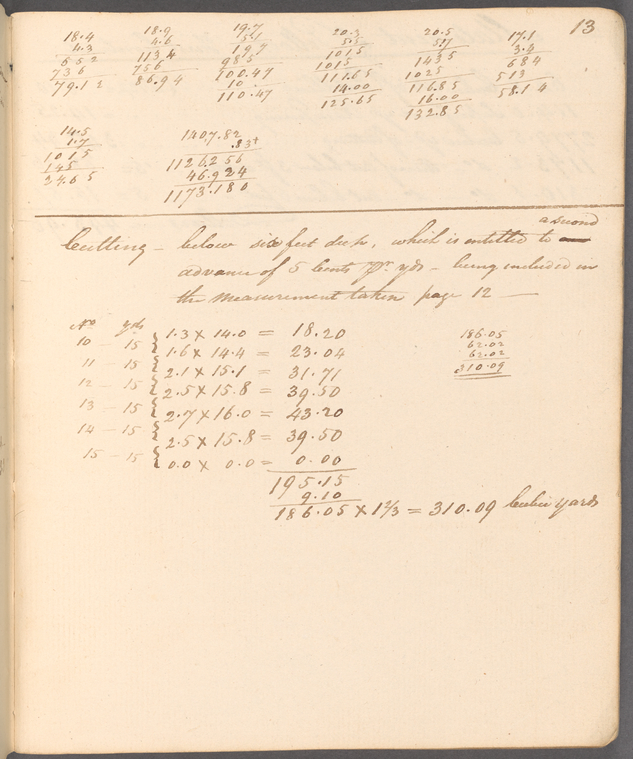 13
18.4 18.9 19.7 20.3 20.5 17.1
4.3 4.6 5.1 5.5 5.7 3.4
552 1134 197 1015 1435 684
736 756 985 1015 1025 513
79.12 86.94 100.47 111.65 116.85 58.14
10 14.00 16.00
110.47 125.65 132.85
14.5 1407.82
1.7 .83+
1015 1126256
145 46.924
24.65 1173.180
a second
Cutting – below six feet deep, which is entitled to an
advance of 5 Cents pr. yds – being included in
the measurement taken page 12 —
No yds
10 – 15 1.3 × 14.0 = 18.20
11 – 15 1.6 × 14.4 = 23.04
12 – 15 2.1 × 15.1 = 31.71
13 – 15 2.5 × 15.8 = 39.50
14 – 15 2.7 × 16.0 = 43.20
15 – 15 2.5 × 15.8 = 39.50
0.0 × 0.0 = 0.00
195.15
9.10
186.05 × 1 2/3 = 310.09 Cubic Yards
186.05
62.02
62.02
310.09